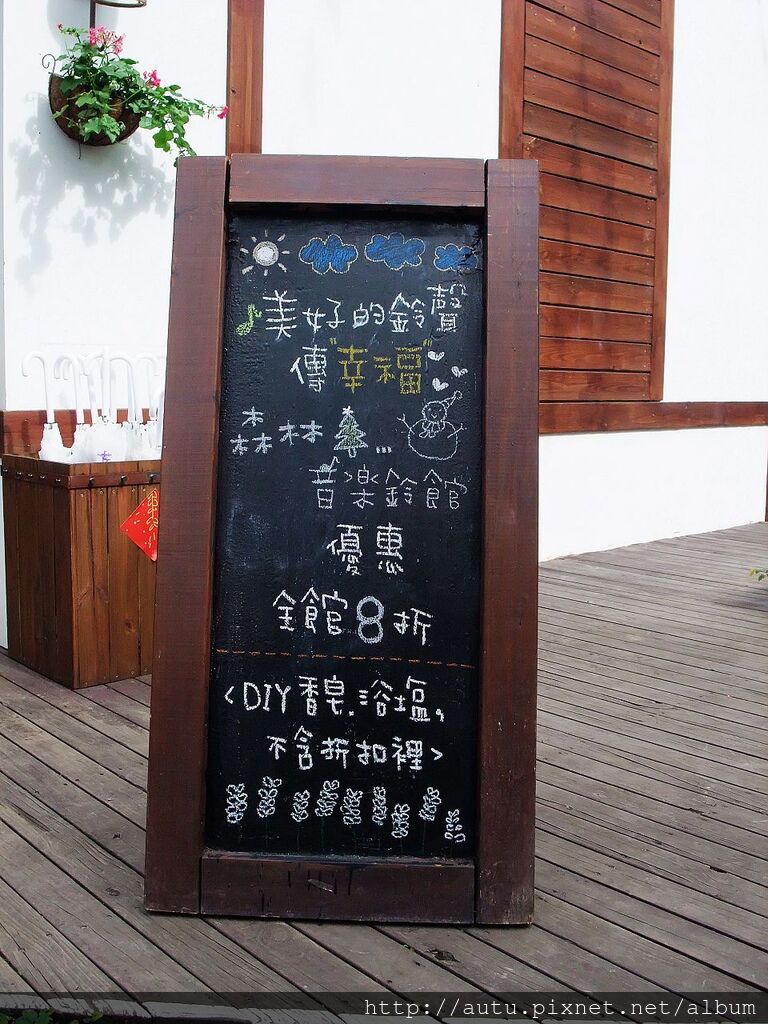 美好的鈴聲
傳"幸福"
森林木...
音樂鈴館
優惠
全館8折
<DIY香皂.浴塩,
不含折扣裡>
http://autu.pixnet.net/album